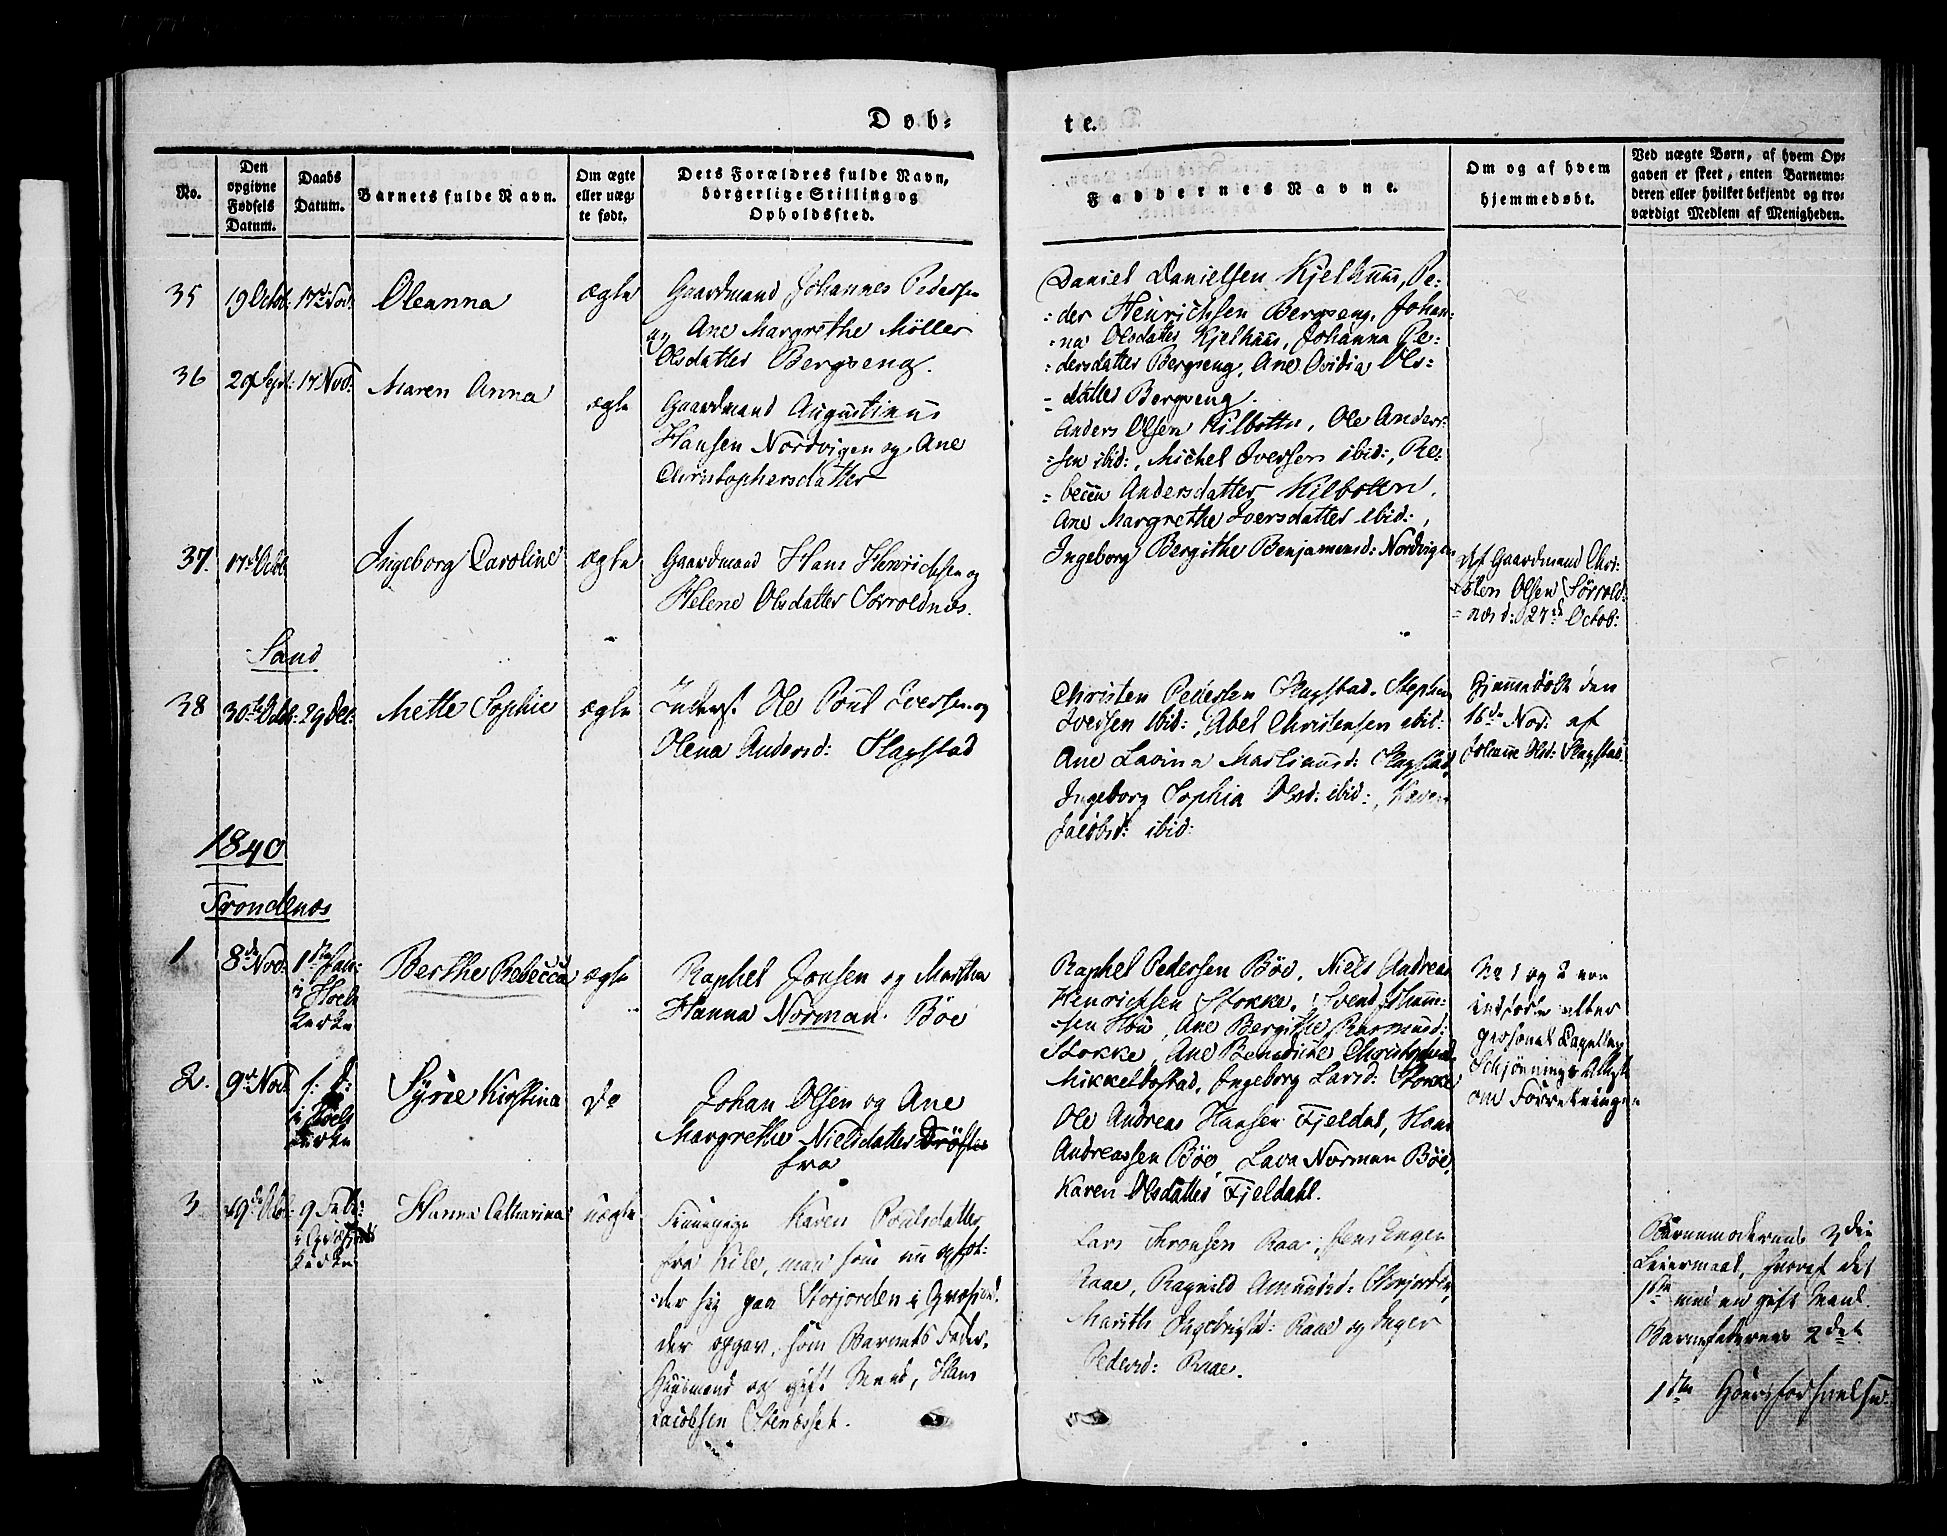 Døb-
te.
No.
Den
opgivne
Fødsels
Datum.
Daabs
Datum.
Barnets fulde Navn.
Om ægte
eller uæg-
te født.
Dets Forældres fulde Navn,
borgerlige Stilling og
Opholdssted.
Faddernes Navne.
Om og af hvem
hjemmedøbt.
Ved uægte Børn, af hvem Op-
gaven er skeet, enten Barnemo-
deren eller hvilket bekjendt og tro-
værdigt Medlem af Menigheden.
35
19 Octob:
17de Nov:
Oleanna
ægte
Gaardmand Johannes Pedersen
og Ane Margrethe Möller
Olsdatter Bergseng.
Daniel Danielsen Kjelhuus, Pe-
der Henrichsen Bergseng, Johan-
na Olsdatter Kjelhuus, Johanna Pe-
dersdatter Bergseng, Ane Ovidia Ols-
datter Bergseng.
36
29 Sept:
17 Nov:
Maren Anna
ægte
Gaardmand Augustinus
Hansen Nordvigen og Ane
Christophersdatter
Anders Olsen Kilbotten, Ole Ander-
sen ibid:, Michel Iversen ibid:, Re-
becca Andersdatter Kilbotten,
Ane Margrethe Iversdatter ibid:,
37.
17de Octb
Ingeborg Caroline
ægte
Gaardmand Hans Henrichsen og
Helene Olsdatter Sørroldnæs.
Ingeborg Bergithe Benjaminsd: Nordvigen
Af Gaardmand Chri-
sten Olsen Sörrold-
næs d: 27de Octob:
Sand
38
30te Octb:
29 Dec:
Mette Sophie
ægte
Inderst Ole Poul Iversen og
Olena Andersd: Slagstad
Christen Pedersen Slagstad, Stephen
Iversen ibid:, Abel Christensen ibid:
Ane Lavina Martinusd: Slagstad,
Ingeborg Sophia Olsd: ibid:, Karen
Jacobsd: ibid:
Hjemmedøbt den
16de Nov: af
Olsd: Slagstad
1840
Trondenæs
1
8de Nov:
1ste Jan:
i Hoels
Kirke
Berthe Rebecca
ægte
Raphel Jonsen og Martha
Hanna Norman Böe
Raphel Pedersen Böe, Niels Andreas
Henrichsen Stokke, Svend
sen Hou, Ane Bergithe Rasmusd:
Stokke, Ane Benedicte Christophersd:
Mikkelbostad, Ingeborg Larsd: Stokke
No 1 og 2 ere
indførte efter
personel Capellan
Schjønnings Attest
om Forretningen
2.
9de Nov
s: D:
i Hoels
Kirke
Syrie Kirstina
do
Johan Olsen og Ane
Margrethe Nielsdatter Dröfte
fra
Ole Andreas Hansen Fjeldal, Hans
Andreassen Böe, Lava Norman Böe,
Karen Olsdatter Fjeldahl.
3
19de Octb:
9 Febr:
i Qvæfjords
Kirke
Hanna Catharina
uægte
Karen Poulsdatter
fra Kile, men som nu ophol-
der sig paa Storjorden i Qvæfjord.
der opgav, som Barnets Fader,
Huusmand og gift Mand, Hans
Jacobsen Stenesset.
Lars Thronsen Raa, Jens Inger
Raae, Ragnild Amundsd:
Marith Ingebrigtsd: Raae og Inger
Pedersd: Raae.
Barnemoderens 2det
Leiermaal, hvoraf det
1ste med en gift Mand.
Barnefaderens 2det
1ste Hoersforseelse.